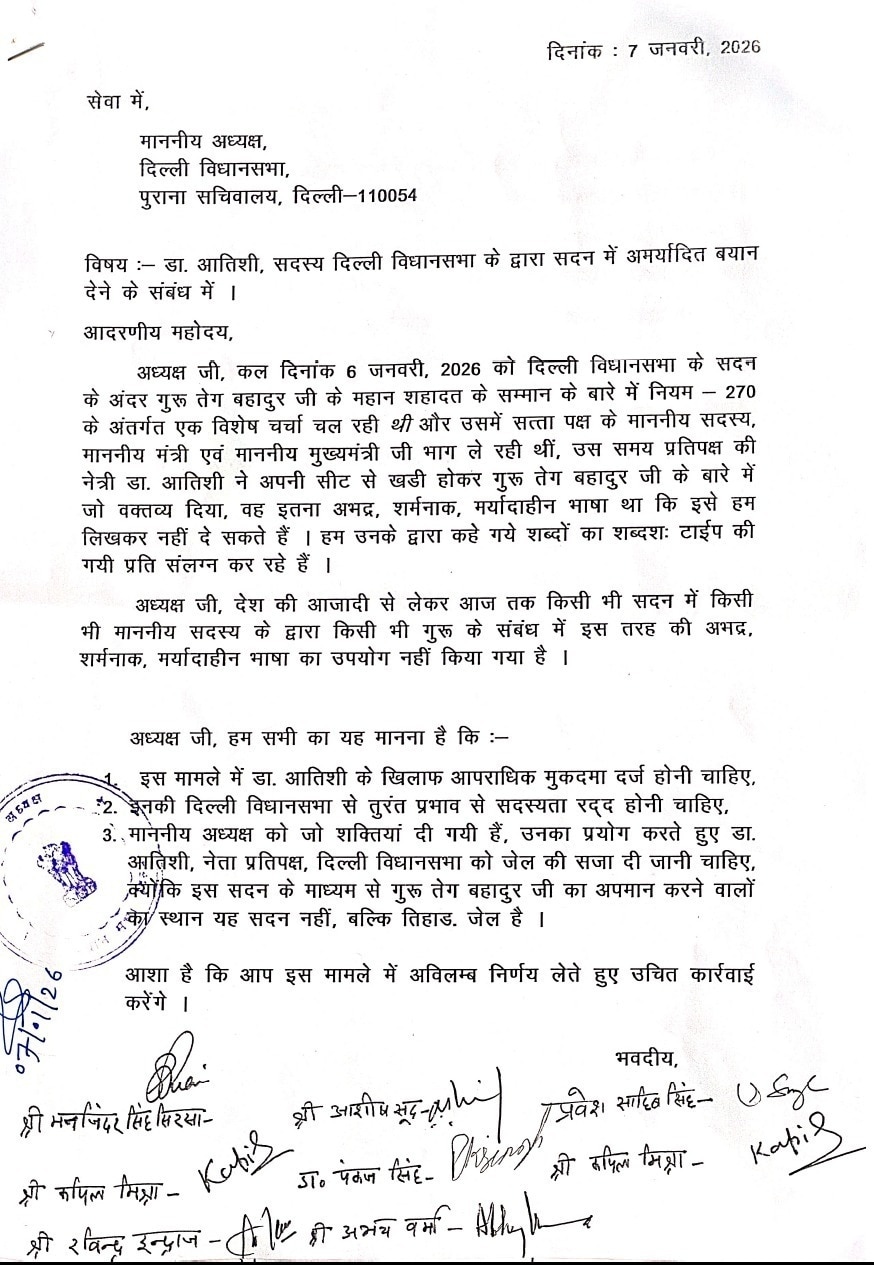 दिनांक : 7 जनवरी, 2026
सेवा में,
माननीय अध्यक्ष,
दिल्ली विधानसभा,
पुराना सचिवालय, दिल्ली–110054
विषय :– डा. आतिशी, सदस्य दिल्ली विधानसभा के द्वारा सदन में अमर्यादित बयान
देने के संबंध में ।
आदरणीय महोदय,
अध्यक्ष जी, कल दिनांक 6 जनवरी, 2026 को दिल्ली विधानसभा के सदन
के अंदर गुरू तेग बहादुर जी के महान शहादत के सम्मान के बारे में नियम – 270
के अंतर्गत एक विशेष चर्चा चल रही थी और उसमें सत्ता पक्ष के माननीय सदस्य,
माननीय मंत्री एवं माननीय मुख्यमंत्री जी भाग ले रही थीं, उस समय प्रतिपक्ष की
नेत्री डा. आतिशी ने अपनी सीट से खडी होकर गुरू तेग बहादुर जी के बारे में
जो वक्तव्य दिया, वह इतना अभद्र, शर्मनाक, मर्यादाहीन भाषा था कि इसे हम
लिखकर नहीं दे सकते हैं । हम उनके द्वारा कहे गये शब्दों का शब्दशः टाईप की
गयी प्रति संलग्न कर रहे हैं ।
अध्यक्ष जी, देश की आजादी से लेकर आज तक किसी भी सदन में किसी
भी माननीय सदस्य के द्वारा किसी भी गुरू के संबंध में इस तरह की अभद्र,
शर्मनाक, मर्यादाहीन भाषा का उपयोग नहीं किया गया है ।
अध्यक्ष जी, हम सभी का यह मानना है कि :–
1. इस मामले में डा. आतिशी के खिलाफ आपराधिक मुकदमा दर्ज होनी चाहिए,
2. इनकी दिल्ली विधानसभा से तुरंत प्रभाव से सदस्यता रद्द होनी चाहिए,
3. माननीय अध्यक्ष को जो शक्तियां दी गयी हैं, उनका प्रयोग करते हुए डा.
आतिशी, नेता प्रतिपक्ष, दिल्ली विधानसभा को जेल की सजा दी जानी चाहिए,
क्योंकि इस सदन के माध्यम से गुरू तेग बहादुर जी का अपमान करने वालों
का स्थान यह सदन नहीं, बल्कि तिहाड. जेल है ।
अध्यक्ष
आशा है कि आप इस मामले में अविलम्ब निर्णय लेते हुए उचित कार्रवाई
करेंगे ।
07/01/26
भवदीय,
श्री मनजिंदर सिंह सिरसा–
श्री आशीष सूद–
प्रवेश साहिब सिंह–
श्री कपिल मिश्रा – Kapil
डा० पंकज सिंह–
श्री कपिल मिश्रा – Kapil
श्री रविन्द्र इन्द्राज –
श्री अभय वर्मा –